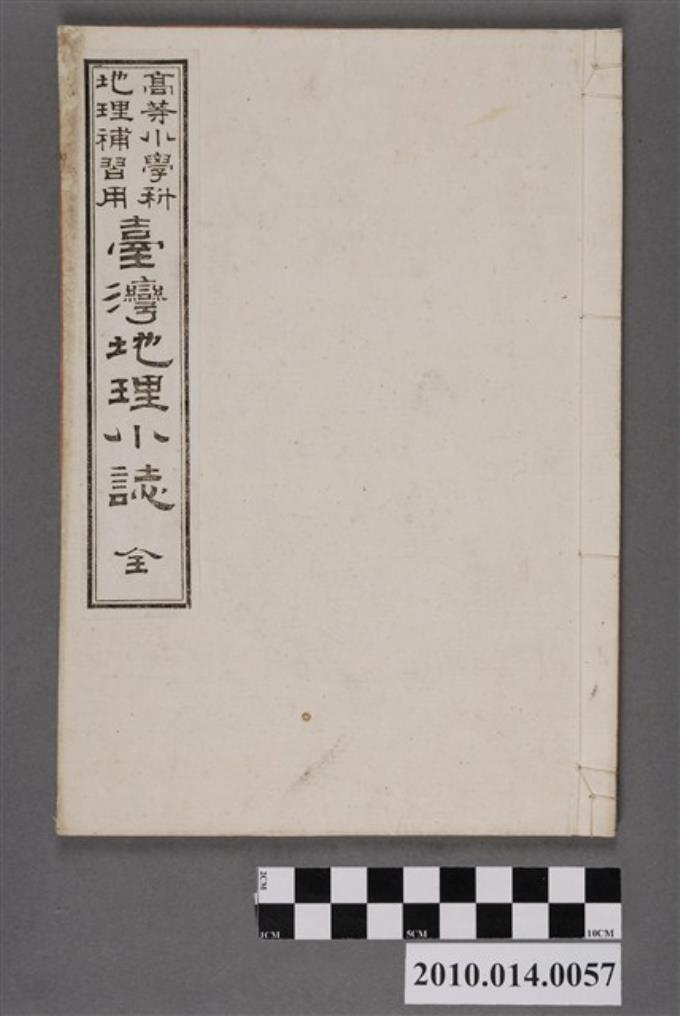 高等小學科
地理補習用
臺灣地理小誌
全
2CM
1CM
5CM
10CM
2010.014.0057